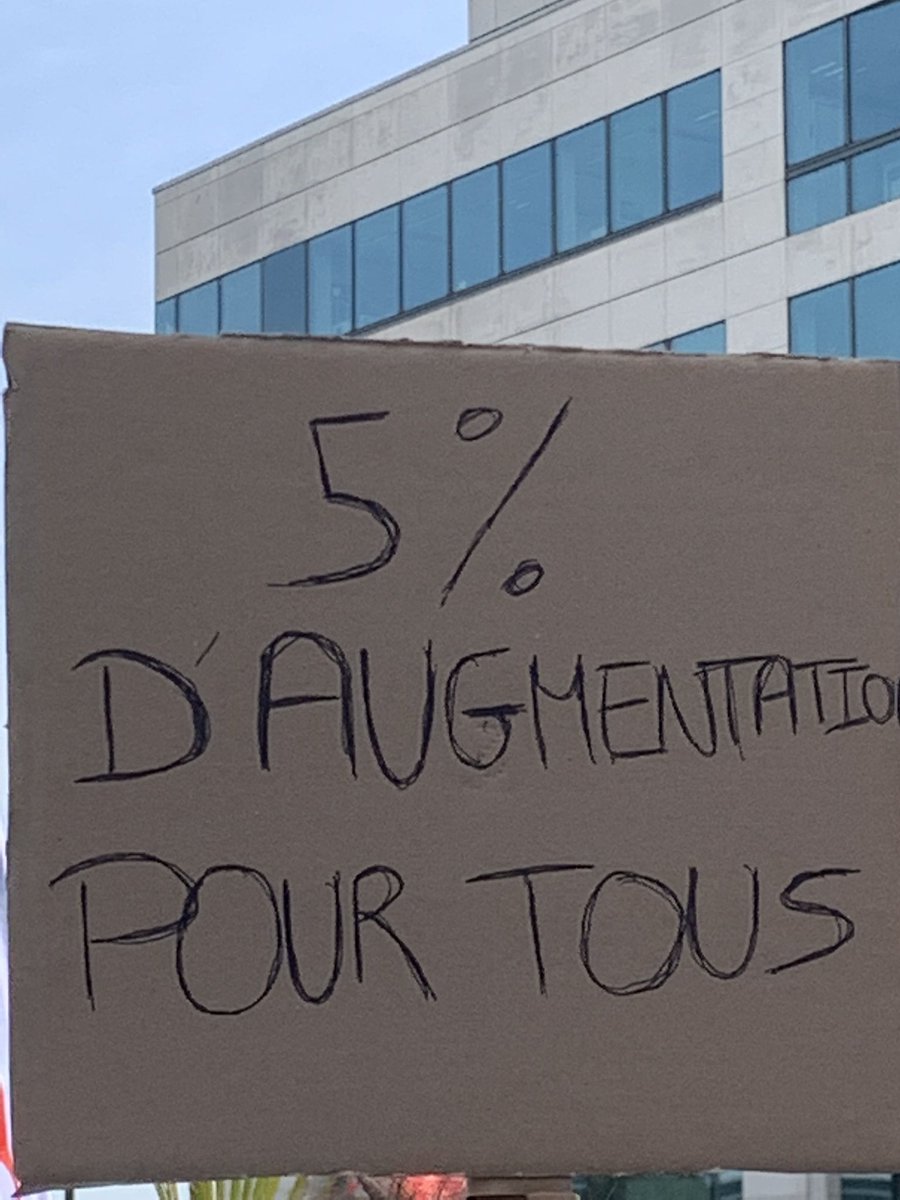 5%
D'AUGMENTATION
POUR TOUS